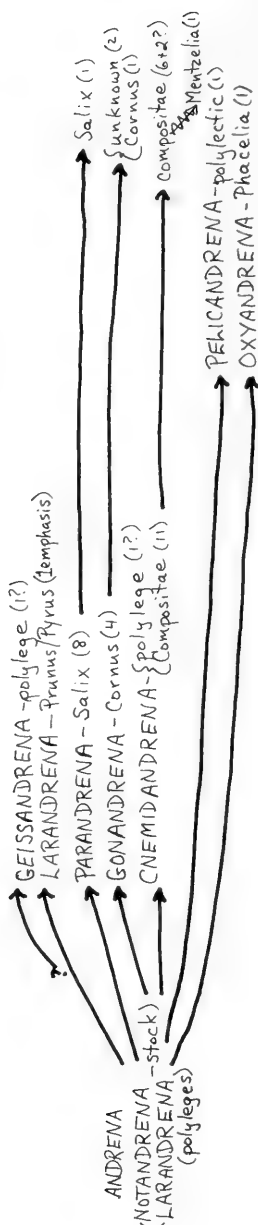 ANDRENA
NOTANDRENA
-LARANDRENA -stock)
(polyleges)
GEISSANDRENA -polylege (1?)
LARANDRENA - Prunus/Pyrus (1emphasis)
PARANDRENA - Salix (8)
GONANDRENA - Cornus (4)
CNEMIDANDRENA - {polylege (1?)
{Compositae (11)
Salix (1)
{unknown (2)
Cornus (1)
Compositae (6+2?)
Mentzelia (1)
PELICANDRENA - polylectic (1)
OXYANDRENA - Phacelia (1)
?